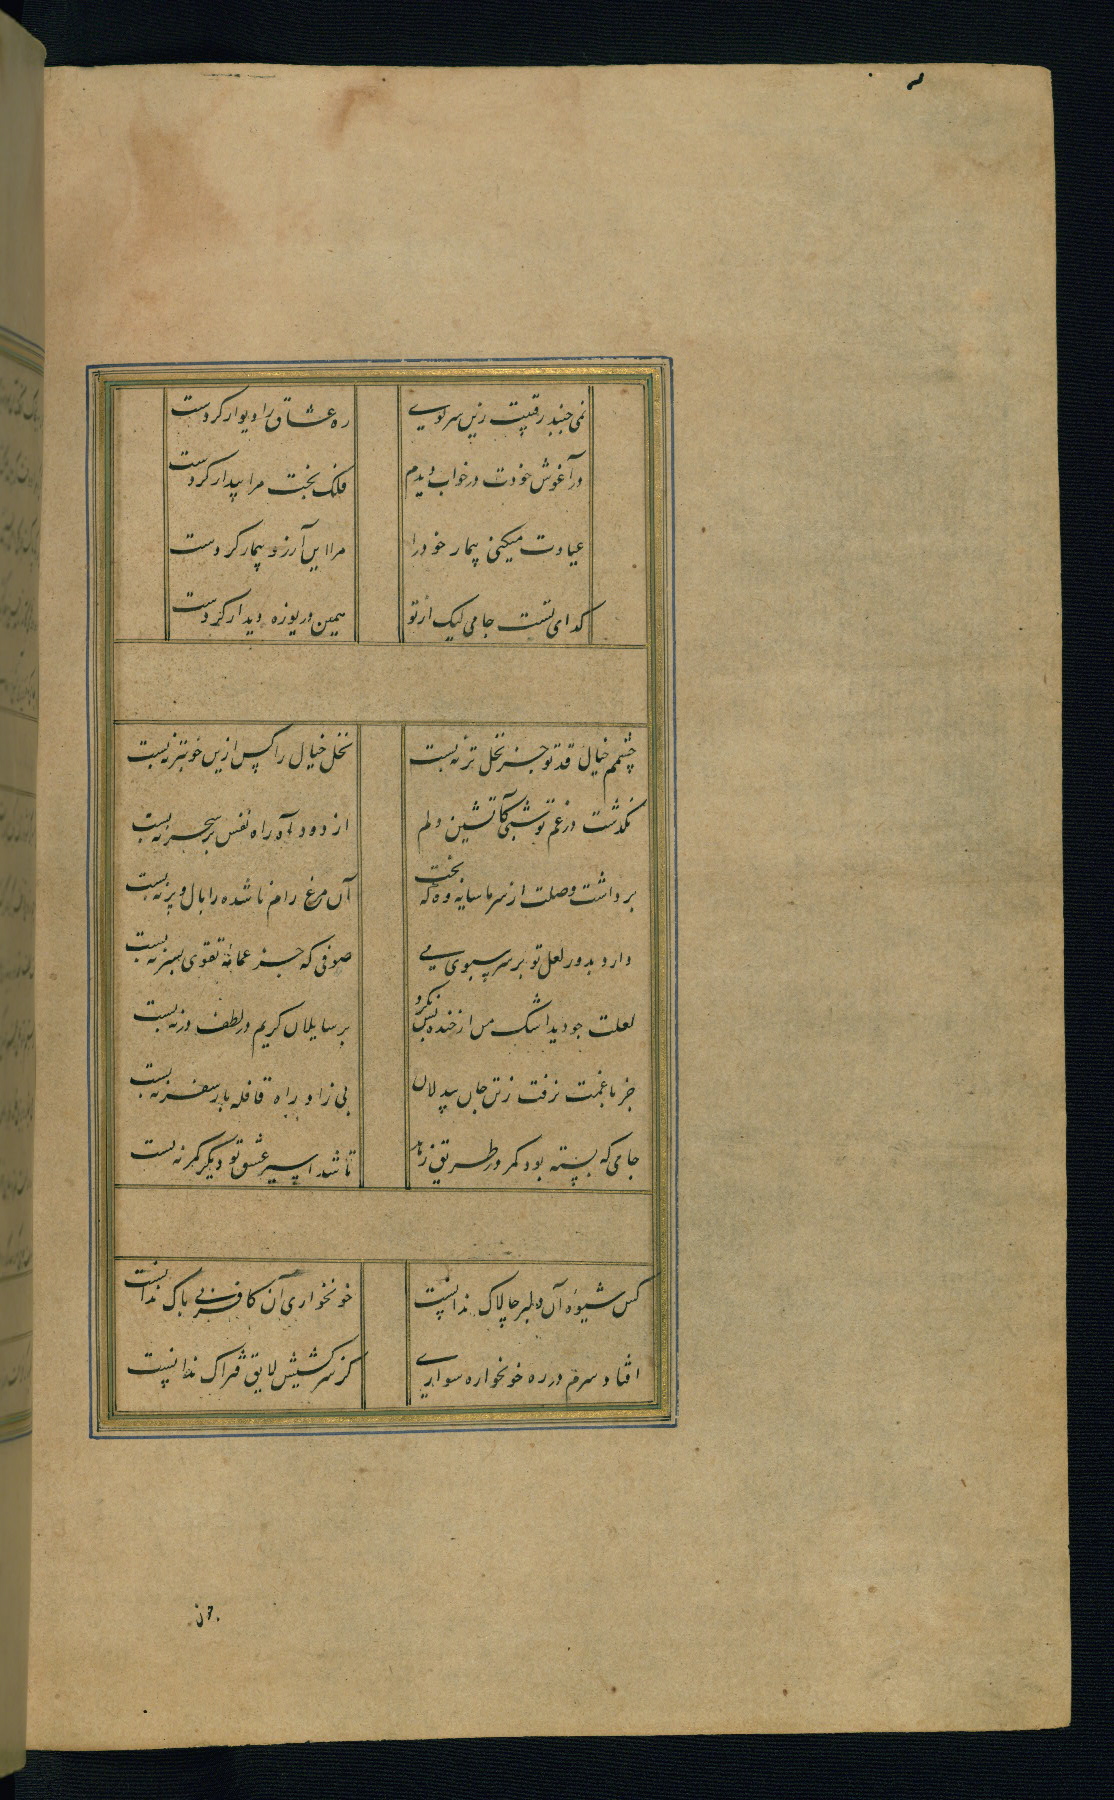 نمی جنبد رقیبت زین سر کوی
ره عشاق را دیوار کردست
در آغوش خودت در خواب دیدم
فلک بخت مرا بیدار کردست
عیادت میکنی بیمار خود را
مرا این آرزو بیمار کردست
کدای تست جامی لیک از تو
همین دریوزه دیدار کردست
چشمم خیال قد تو جز نخل تر نه بست
نخل خیال را کس ازین خوبتر نه بست
نکذشت در غم تو شبی کآتشین دلم
از دود آه راه نفس بر سحر نه بست
برداشت وصلت از سر ما سایه وه که بخت
آن مرغ رام ناشده را بال و پر نه بست
دارد بدور لعل تو بر سر سبوی می
صوفی که جز عمامه تقوی بسر نه بست
لعلت چو دید اشک من از خنده بس نکرد
بر سایلان کریم در لطف در نه بست
جز با غمت نرفت ز تن جان بیدلان
بی زاد راه قافله بار سفر نه بست
جامی که بسته بود کمر در طریق زهد
تا شد اسیر عشق تو دیگر کمر نه بست
کس شیوه آن دلبر چالاک ندانست
خونخواری آن کافر بی باک ندانست
افتاد سرم در ره خونخواره سواری
کز سرکشیش لایق فتراک ندانست